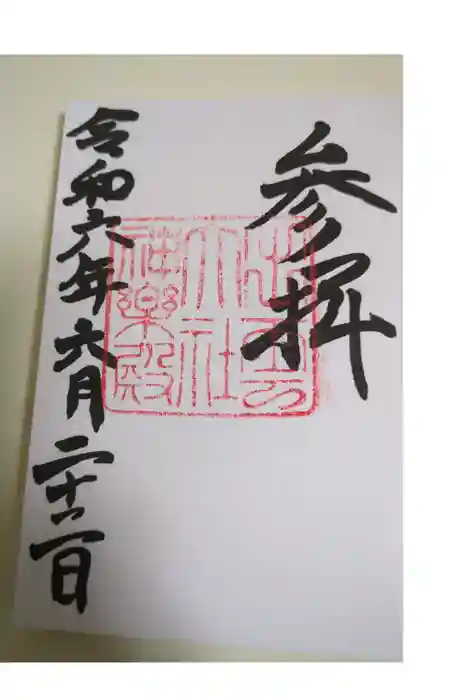 参拝
出雲
大社
神楽殿
令和六年六月二十二日